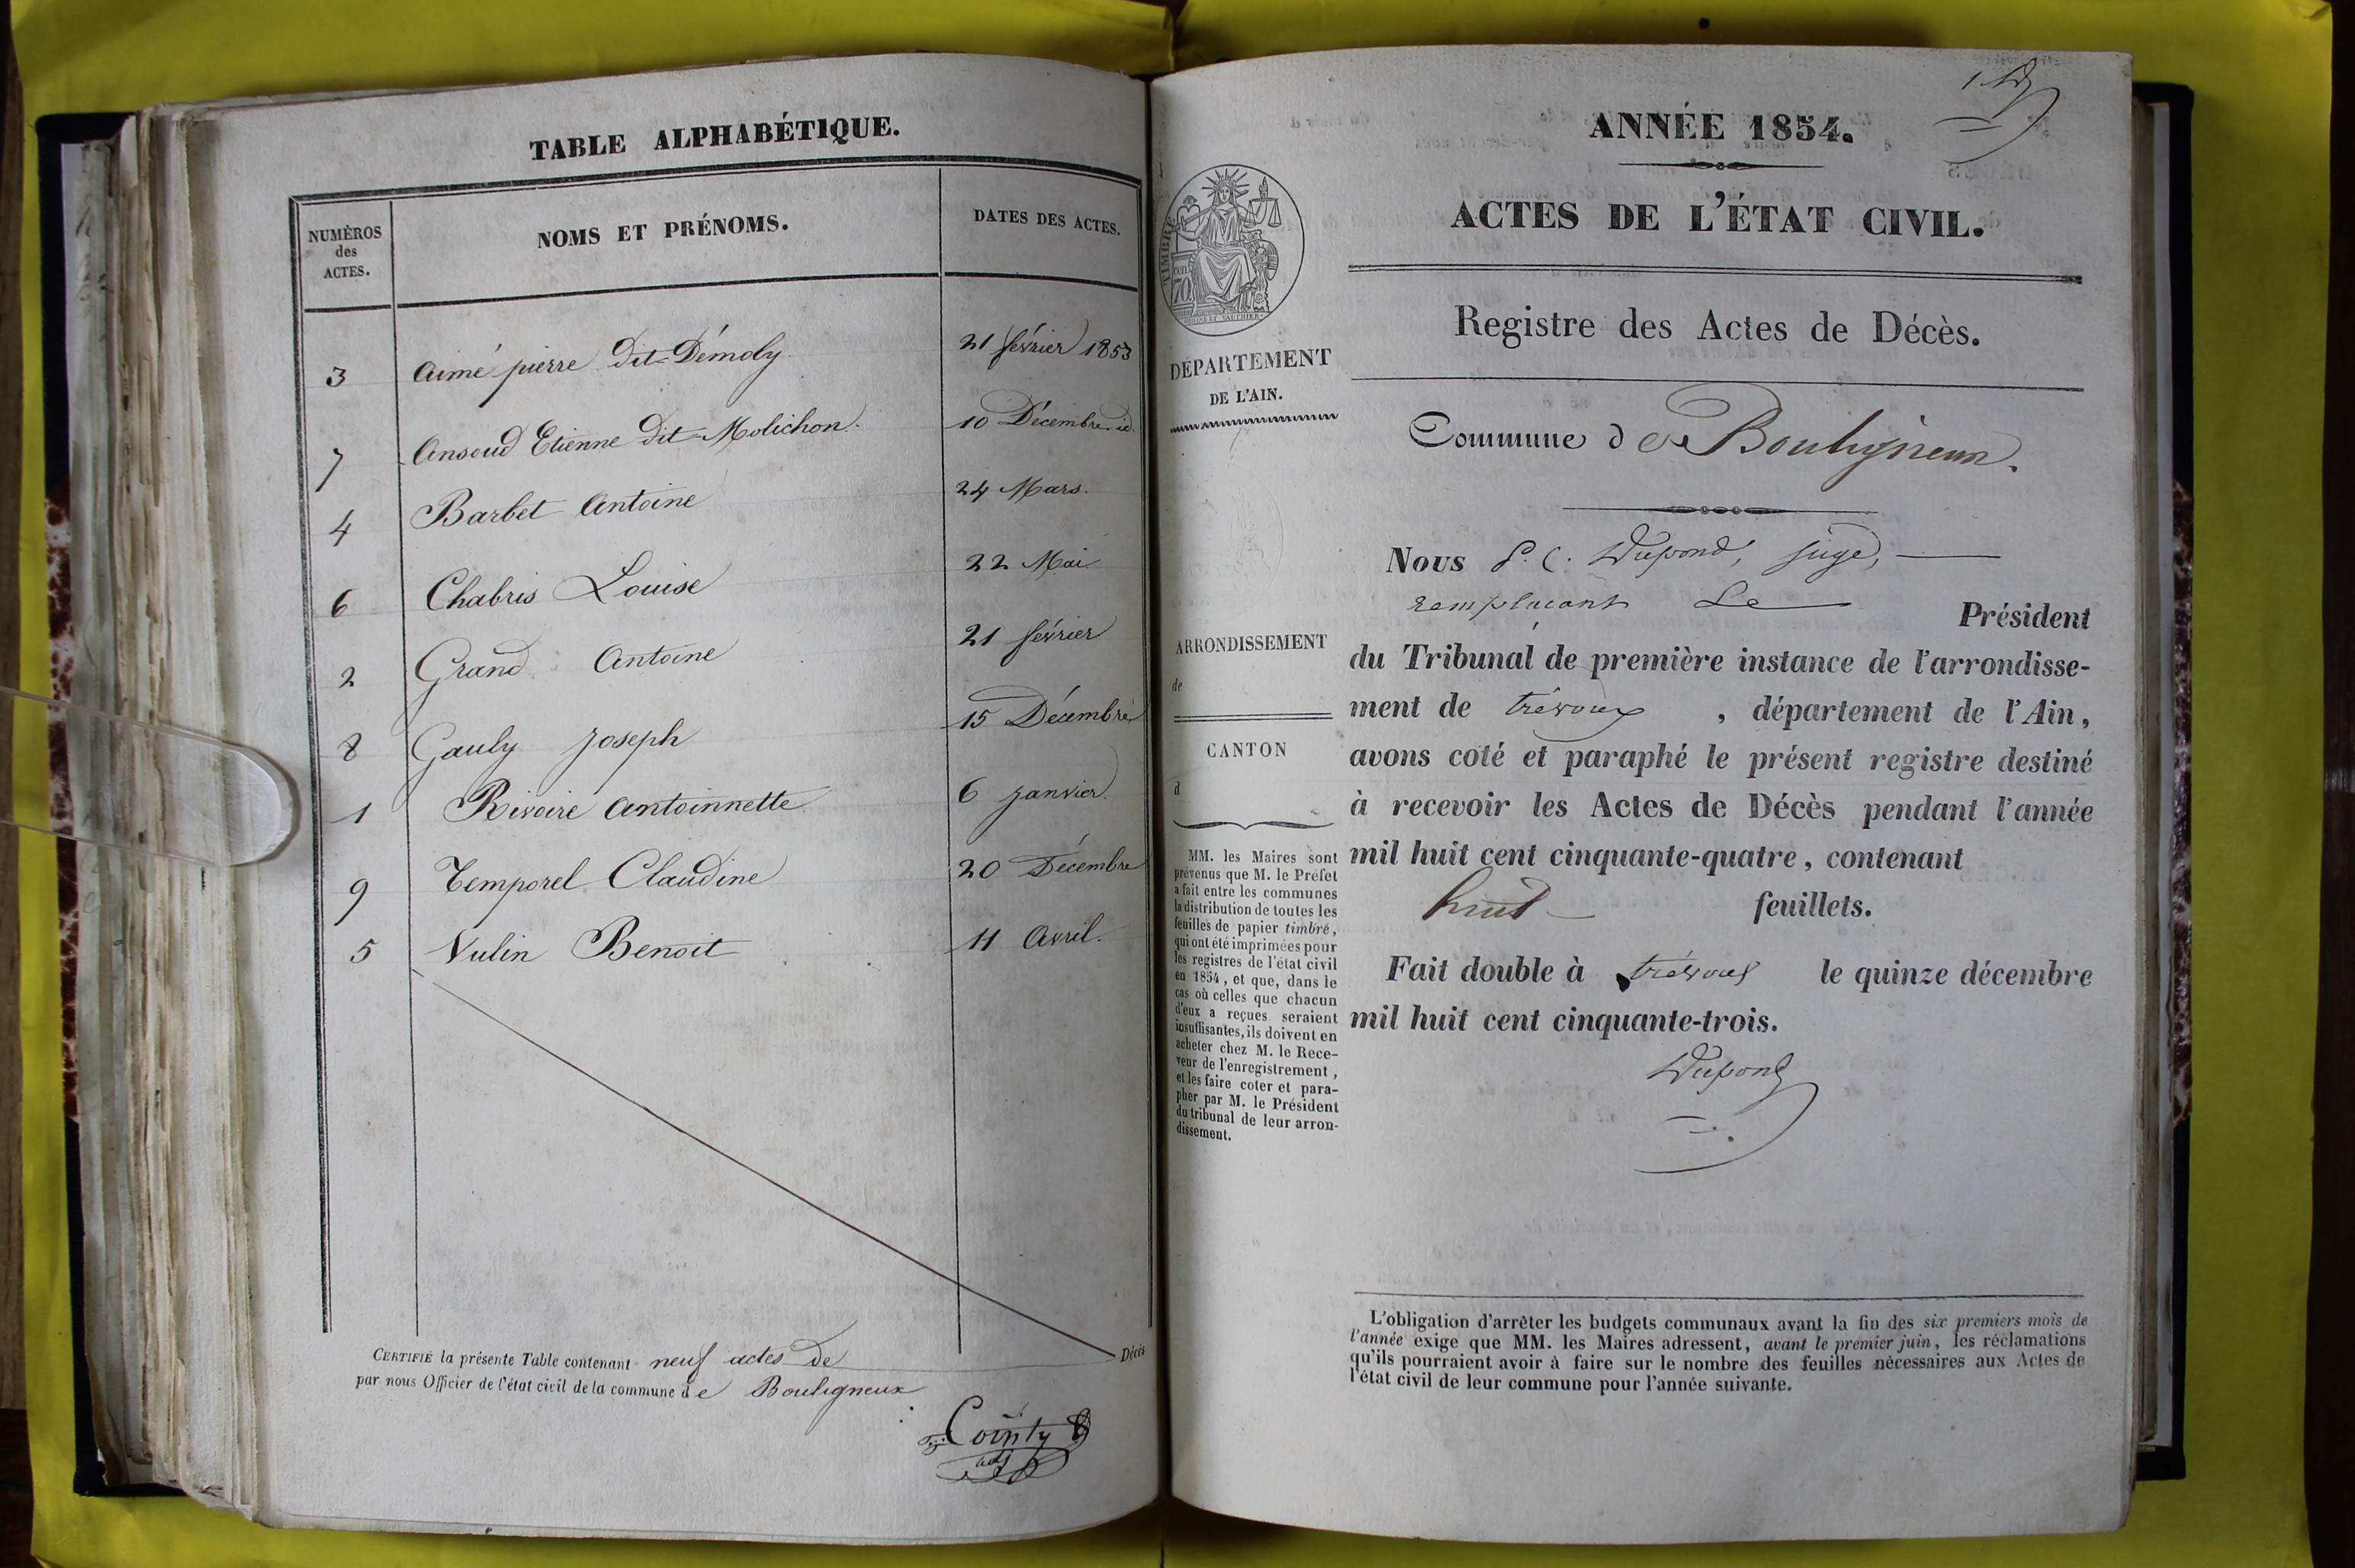 TABLE ALPHABÉTIQUE.
NUMÉROS des ACTES.
NOMS ET PRÉNOMS.
DATES DES ACTES.
3 Aimé pierre dit Démoly 21 février 1853
7 Ansoud Etienne dit Molichon. 10 Décembre id.
4 Barbet Antoine 24 Mars.
6 Chabris Louise 22 Mai
2 Grand Antoine 21 février
8 Gauly Joseph 15 Décembre
1 Rivoire Antoinnette 6 janvier.
9 Temporel Claudine 20 Décembre
5 Vulin Benoit 11 Avril.
CERTIFIÉ la présente Table contenant neuf actes de Décès
par nous Officier de l'état civil de la commune de Bouligneux
Cointy
adj
ANNÉE 1854.
ACTES DE L'ÉTAT CIVIL.
Registre des Actes de Décès.
TIMBRE
70
DÉPARTEMENT
DE L'AIN.
ARRONDISSEMENT
de
CANTON
d
MM. les Maires sont
prévenus que M. le Préfet
a fait entre les communes
la distribution de toutes les
feuilles de papier timbré,
qui ont été imprimées pour
les registres de l'état civil
en 1854, et que, dans le
cas où celles que chacun
d'eux a reçues seraient
insuffisantes, ils doivent en
acheter chez M. le Rece-
veur de l'enregistrement,
et les faire coter et para-
pher par M. le Président
du tribunal de leur arron-
dissement.
Commune de Bouligneux.
Nous P. C. Dupond, juge,
remplaçant Le Président
du Tribunal de première instance de l'arrondisse-
ment de trévoux, département de l'Ain,
avons coté et paraphé le présent registre destiné
à recevoir les Actes de Décès pendant l'année
mil huit cent cinquante-quatre, contenant
huit feuillets.
Fait double à trévoux le quinze décembre
mil huit cent cinquante-trois.
Dupond
L'obligation d'arrêter les budgets communaux avant la fin des six premiers mois de
l'année exige que MM. les Maires adressent, avant le premier juin, les réclamations
qu'ils pourraient avoir à faire sur le nombre des feuilles nécessaires aux Actes de
l'état civil de leur commune pour l'année suivante.